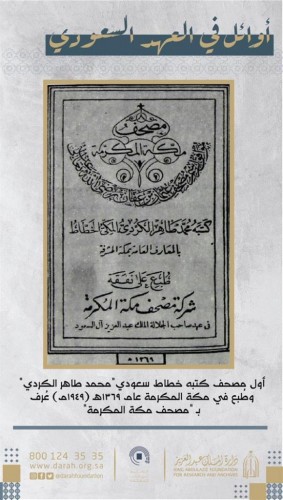 أوائل في العهد السعودي
مصحف
مكة المكرمة
كتبه محمد طاهر الكردي المكي الخطاط
بالمعارف العامة بمكة المشرفة
طبع على نفقة
شركة مصحف مكة المكرمة
في عهد صاحب الجلالة الملك عبد العزيز آل السعود
١٣٦٩هـ
أول مصحف كتبه خطاط سعودي "محمد طاهر الكردي"
وطُبع في مكة المكرمة عام ١٣٦٩هـ (١٩٤٩م) عُرف
بـ "مصحف مكة المكرمة"
800 124 35 35
www.darah.org.sa
@darahfoundation
دارة الملك عبد العزيز
KING ABDULAZIZ FOUNDATION
FOR RESEARCH AND ARCHIVES